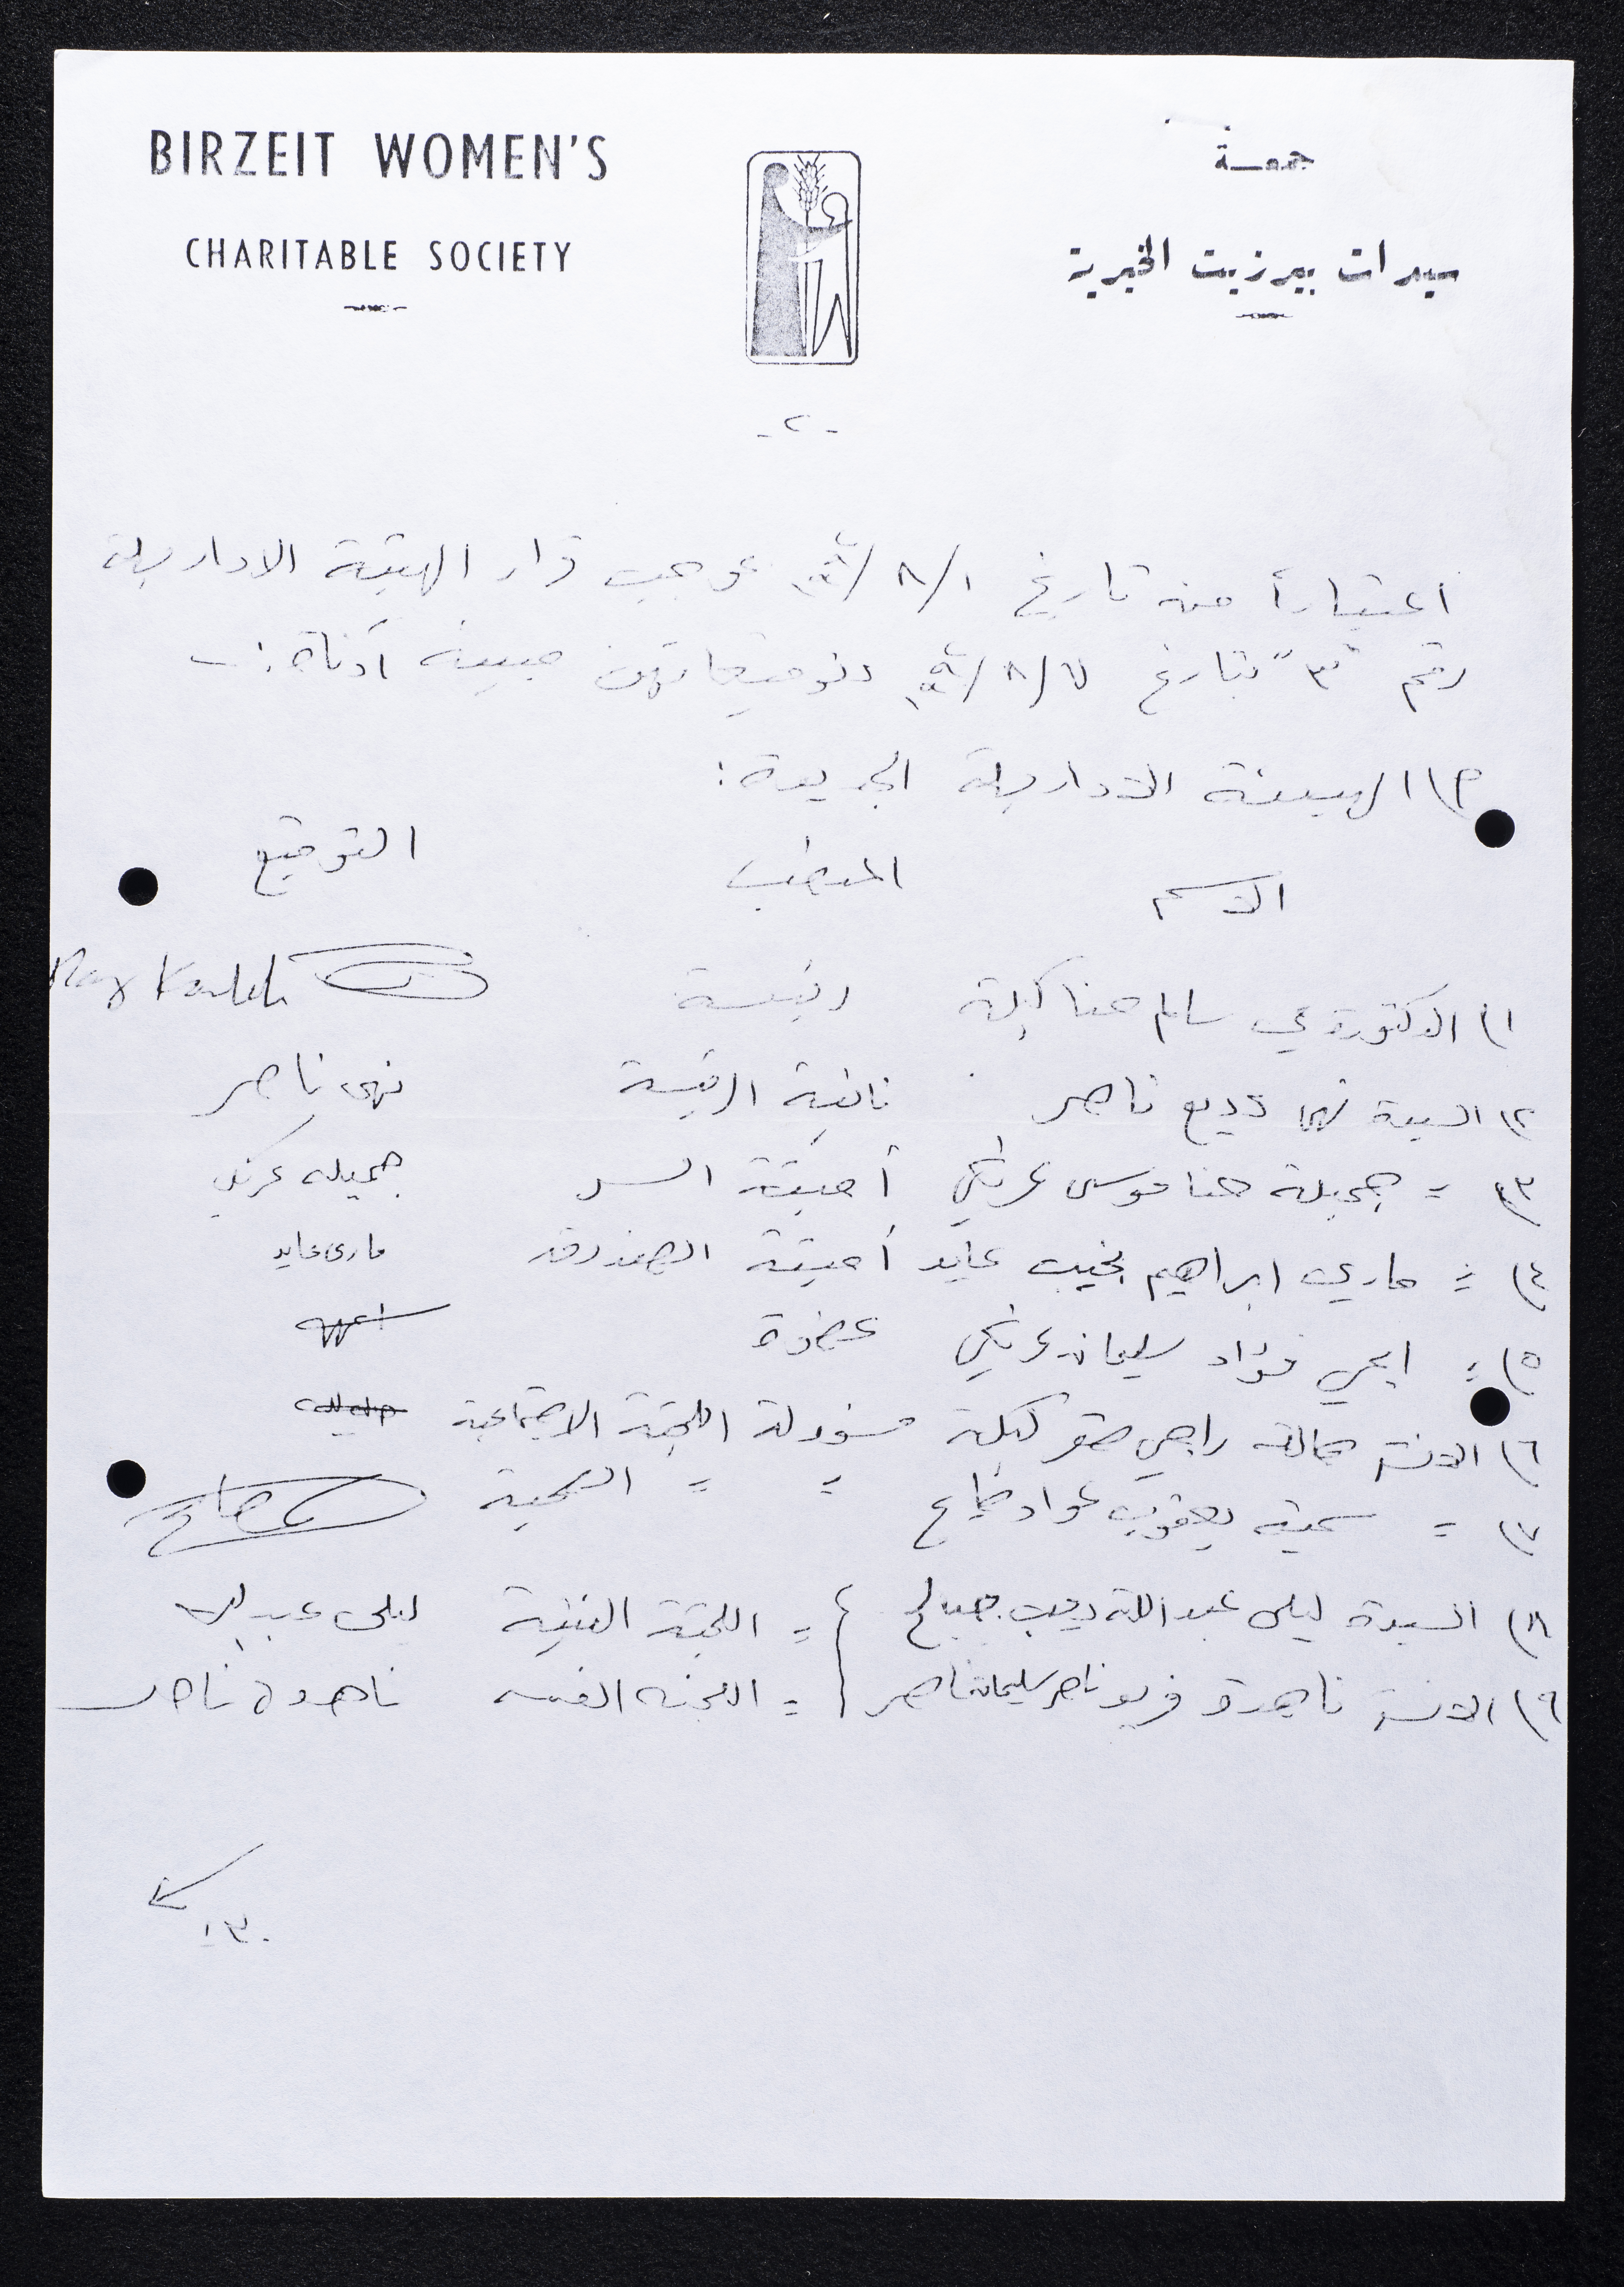 BIRZEIT WOMEN'S
CHARITABLE SOCIETY
جمعية
سيدات بيرزيت الخيرية
-٢-
اعتباراً من تاريخ ١/٨/ بموجب قرار الهيئة الادارية
رقم "٣" بتاريخ ٧/٨/ وتوقيعاتهن مبينه أدناه :-
٢) الهيئة الادارية الجديدة :
الاسم المنصب التوقيع
١) الدكتورة مي سالم حنا كيلة رئيسة
٢) السيدة نهى وديع ناصر نائبة الرئيسة نهى ناصر
٣) = جميلة حنا موسى عرنكي أمينة السر جميله عرنكي
٤) = ماري ابراهيم نجيب عايد أمينة الصندوق ماري عايد
٥) = ايمي فؤاد سليمان عرنكي عضوة
٦) الانسة هالة راجي صقر كيلة مسؤولة اللجنة الاجتماعية
٧) = سمية يعقوب عواد = = الصحية
٨) السيدة ليلى عبدالله ديب = اللجنة الفنية ليلى عبدالله
٩) الانسة ناهدة فريد ناصر سليمان ناصر = اللجنه الفنيه ناهدة ناصر
٣٠